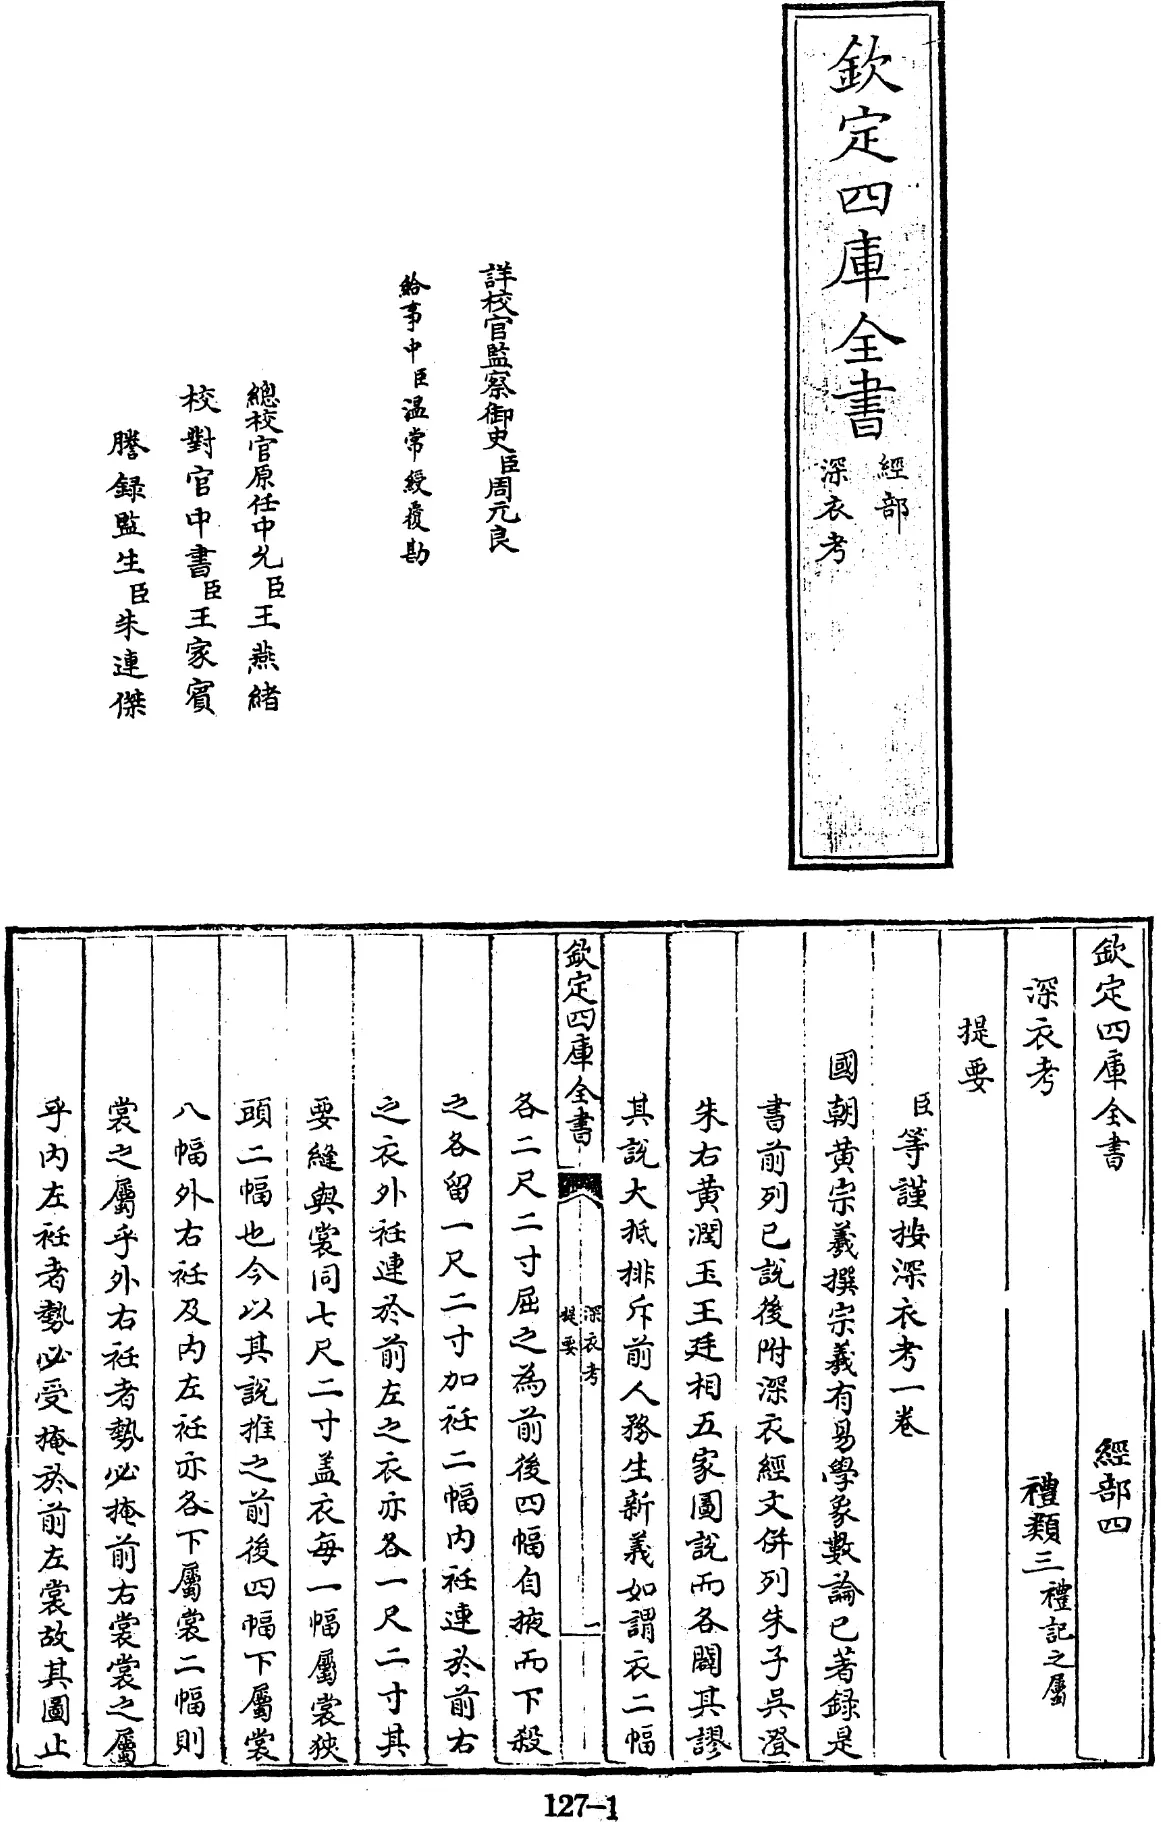 欽定四庫全書
經部
深衣考
詳校官監察御史臣周元良
給事中臣温常綬覆勘
總校官原任中允臣王燕緒
校對官中書臣王家賓
謄録監生臣朱連傑
欽定四庫全書 經部四
深衣考 禮類三禮記之屬
提要
臣等謹按深衣考一卷
國朝黄宗羲撰宗羲有易學象數論已著録是
書前列已說後附深衣經文併列朱子吳澄
朱右黄潤玉王廷相五家圖說而各闢其謬
其說大抵排斥前人務生新義如謂衣二幅
欽定四庫全書
深衣考
提要
一
各二尺二寸屈之為前後四幅自掖而下殺
之各留一尺二寸加衽二幅内衽連於前右
之衣外衽連於前左之衣亦各一尺二寸其
要縫與裳同七尺二寸盖衣每一幅屬裳狹
頭二幅也今以其說推之前後四幅下屬裳
八幅外右衽及内左衽亦各下屬裳二幅則
裳之屬乎外右衽者勢必掩前右裳裳之屬
乎内左衽者勢必受掩於前左裳故其圖止
127-1